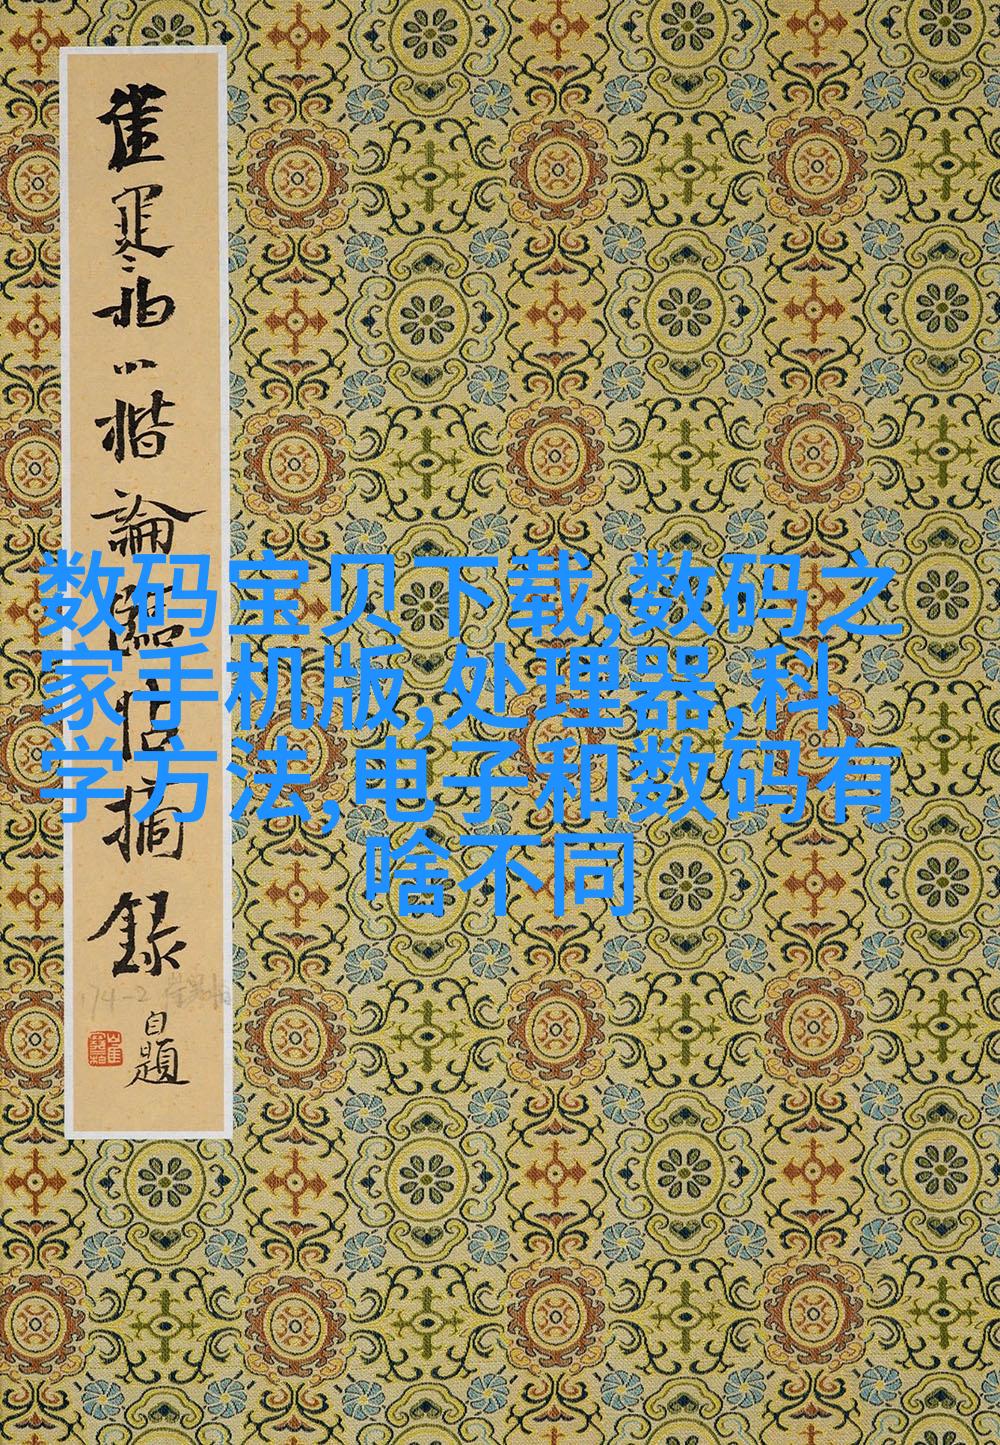 崔寒柏小楷論臨帖摘錄
自題
174-2
数码宝贝下载,数码之
家手机版,处理器,科
学方法,电子和数码有
啥不同